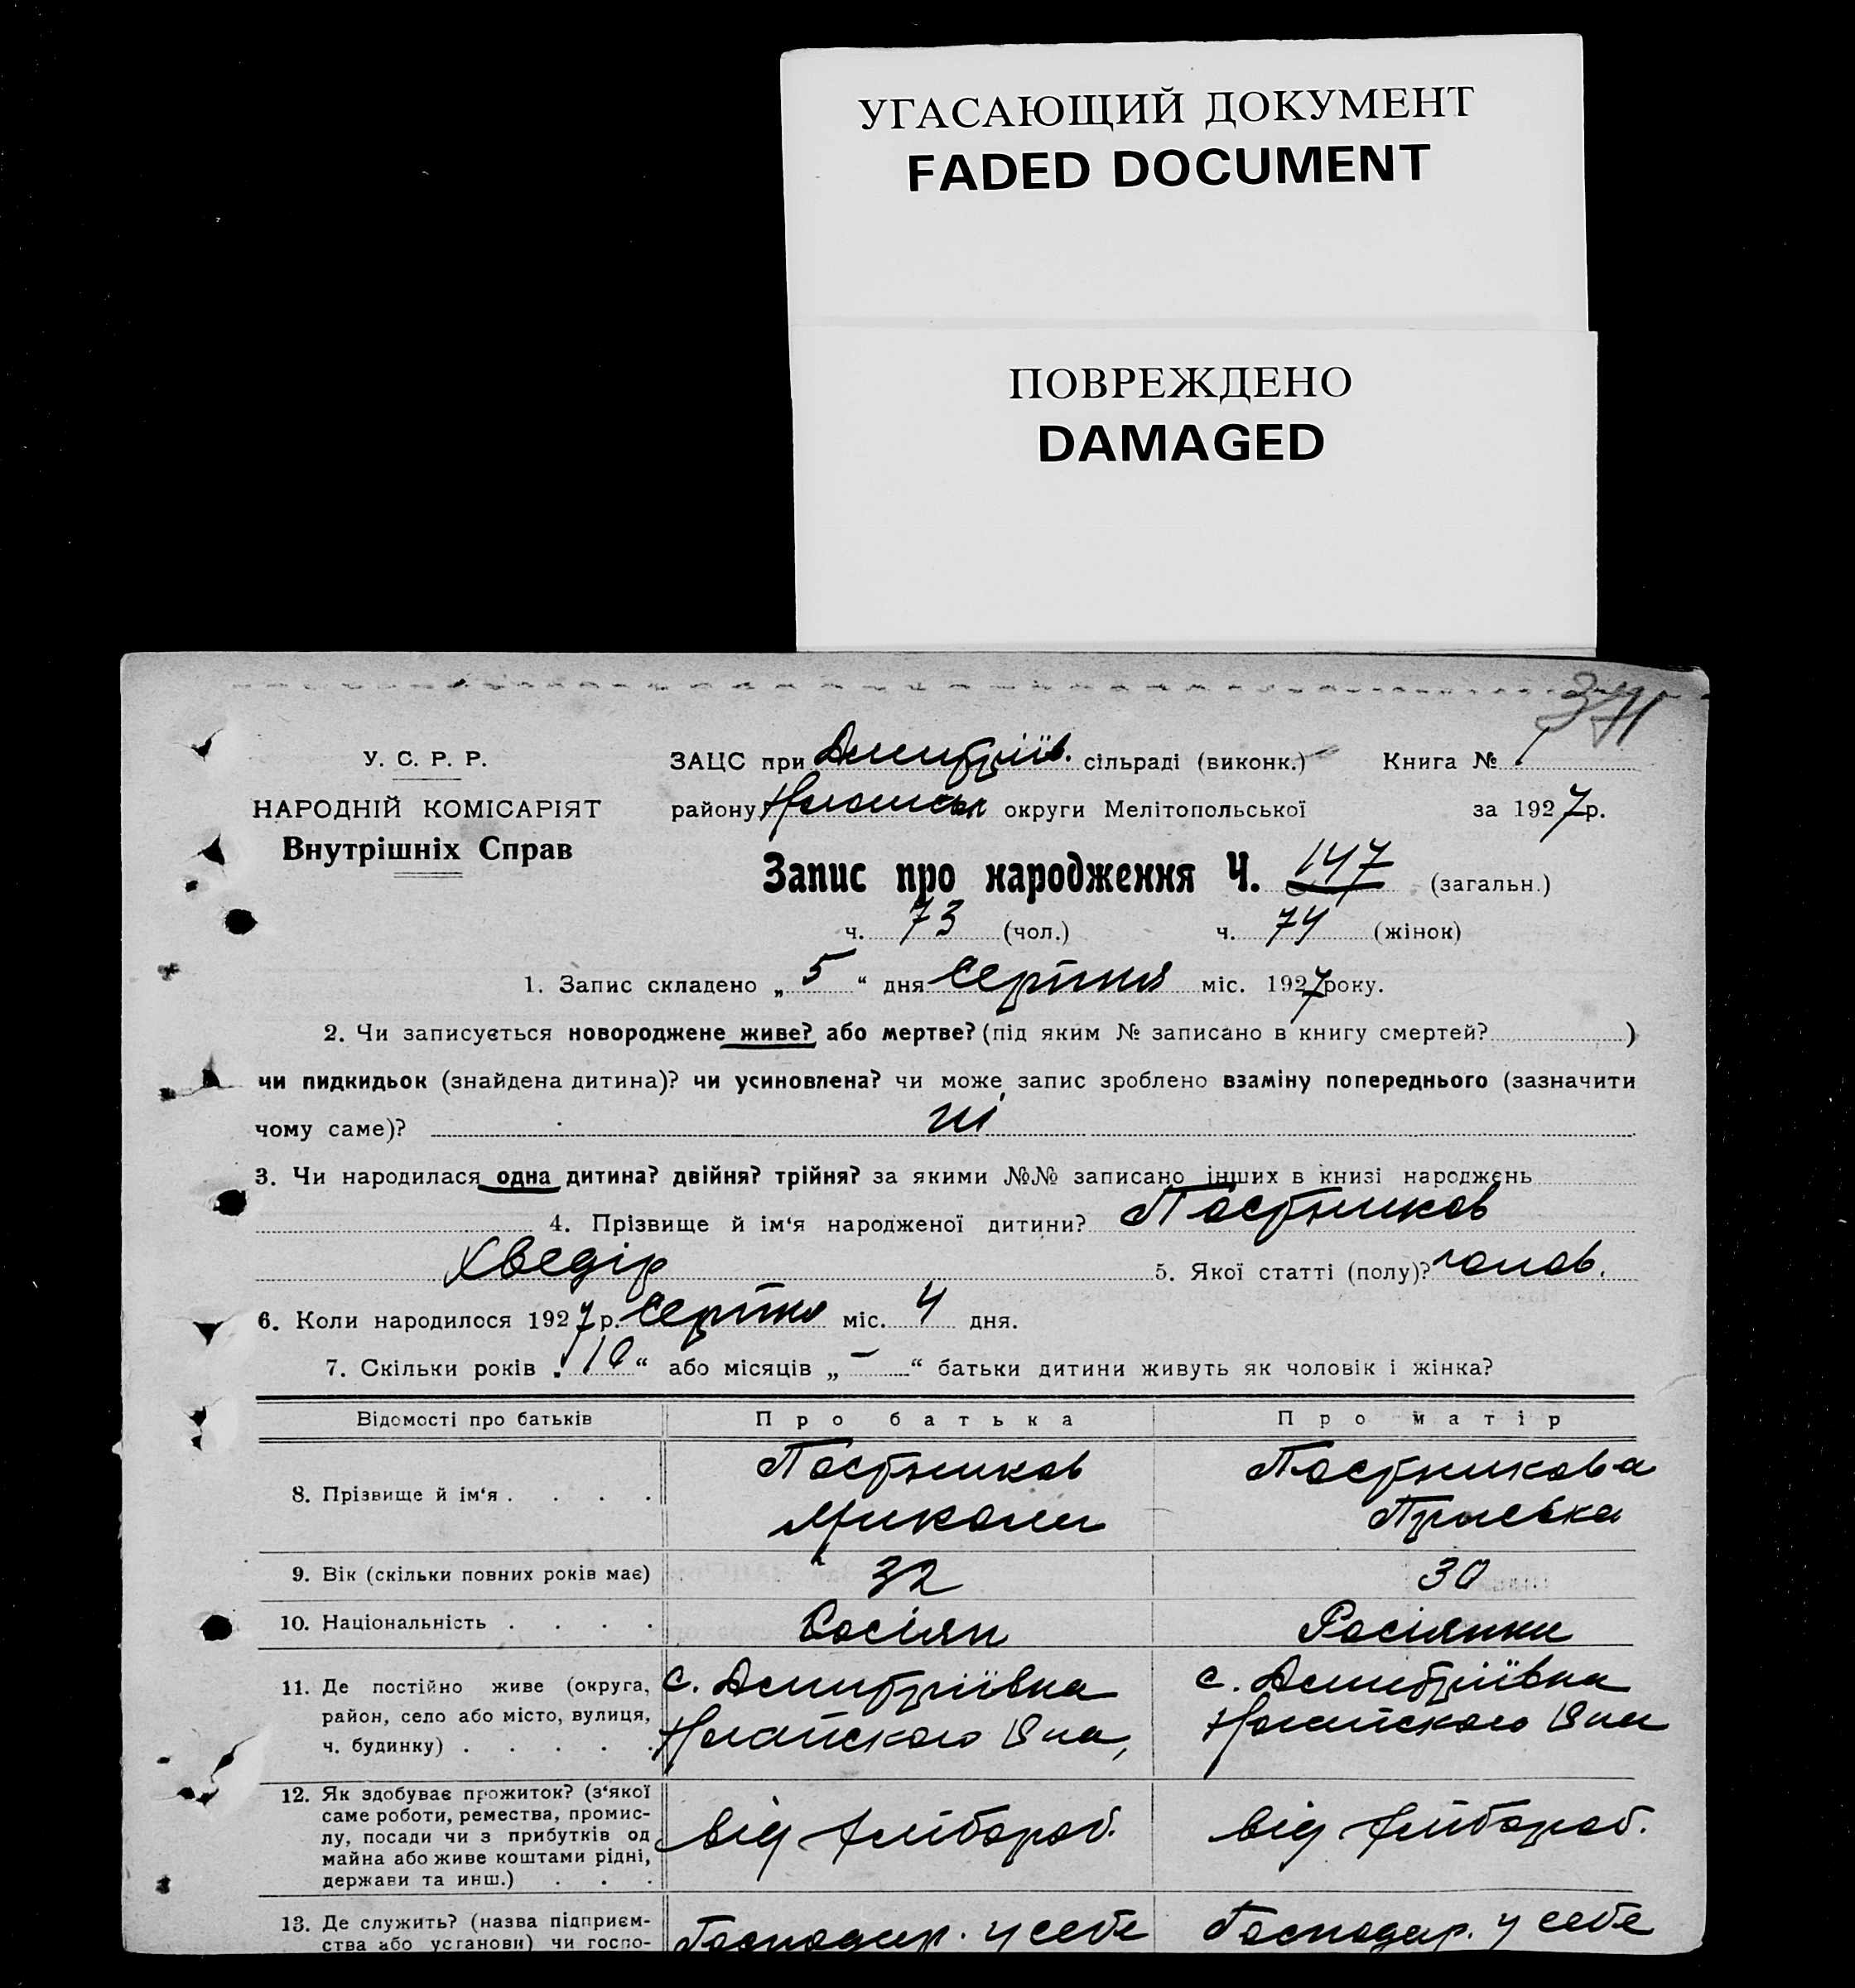 УГАСАЮЩИЙ ДОКУМЕНТ
FADED DOCUMENT
ПОВРЕЖДЕНО
DAMAGED
У. С. Р. Р.
НАРОДНІЙ КОМІСАРІЯТ
Внутрішніх Справ
ЗАЦС при Дмитріїв. сільраді (виконк.) Книга № 1
району округи Мелітопольської за 1927 р.
Запис про народження Ч. 147 (загальн.)
ч. 73 (чол.) ч. 74 (жінок)
1. Запис складено „ 5 “ дня Серпня міс. 1927 року.
2. Чи записується новороджене живе? або мертве? (під яким № записано в книгу смертей? )
чи пидкидьок (знайдена дитина)? чи усиновлена? чи може запис зроблено взаміну попереднього (зазначити
чому саме)? ні
3. Чи народилася одна дитина? двійня? трійня? за якими №№ записано інших в книзі народжень
4. Прізвище й ім‘я народженої дитини? Постников
Хведір 5. Якої статті (полу)? чолов.
6. Коли народилося 1927 р. Серпня міс. 4 дня.
7. Скільки років „ 10 “ або місяців „ – “ батьки дитини живуть як чоловік і жінка?
Відомості про батьків Про батька Про матір
8. Прізвище й ім‘я . . . . Постников Постникова
Микола Приська
9. Вік (скільки повних років має) 32 30
10. Національність . . . . Росіян Росіянка
11. Де постійно живе (округа, с. Дмитріївка с. Дмитріївка
район, село або місто, вулиця, Ногайского Р-на, Ногайского Р-на
ч. будинку) . . . . .
12. Як здобуває прожиток? (з‘якої
саме роботи, ремества, промис-
лу, посади чи з прибутків од від хлібороб. від хлібороб.
майна або живе коштами рідні,
держави та инш.) . . .
13. Де служить? (назва підприєм- Господар. у себе Господар. у себе
ства або установи) чи госпо-